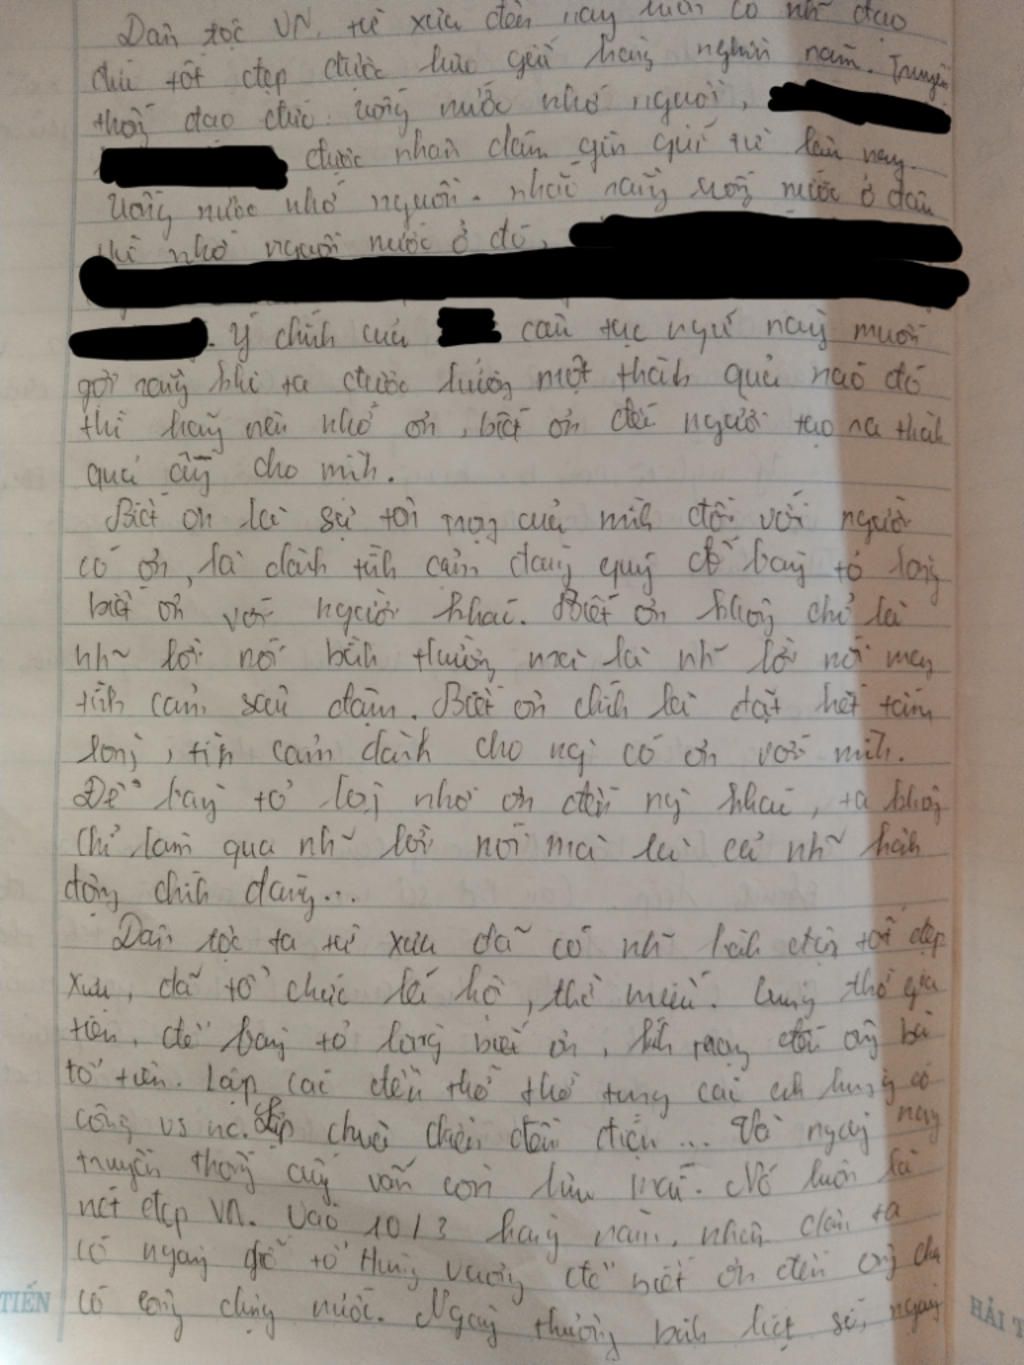 Dân tộc VN, từ xưa đến nay luôn có nh~ đạo
đức tốt đẹp được lưu giữ hàng nghìn năm. Truyền
thống đạo đức: Uống nước nhớ nguồn,
được nhân dân gìn giữ từ lâu nay.
Uống nước nhớ nguồn. nhắc rằng uống nước ở đâu
thì nhớ nguồn nước ở đó,
. Ý chính của câu tục ngữ này muốn
gợi rằng khi ta được hưởng một thành quả nào đó
thì hãy nên nhớ ơn, biết ơn đến người tạo ra thành
quả ấy cho mình.
Biết ơn là sự tôn trọng của mình đối với người
có ơn, là dành tình cảm đáng quý để bày tỏ lòng
biết ơn với người khác. Biết ơn không chỉ là
nh~ lời nói bình thường mà là nh~ lời nói mang
tình cảm sâu đậm. Biết ơn chính là đặt hết tấm
lòng, tình cảm dành cho ng` có ơn với mình.
Để bày tỏ lòng nhớ ơn đến ng` khác, ta không
chỉ làm qua nh~ lời nói mà là cả nh~ hành
động chính đáng...
Dân tộc ta từ xưa đã có nh~ tốt đẹp
xưa, đã tổ chức lễ hội, thờ miếu. Cúng thờ gia
tiên, để bày tỏ lòng biết ơn, kính trọng đến ông bà
tổ tiên. Lập các đền thờ thờ các anh hùng có
công vs nc. chùa đền điện... Và ngày nay
truyền thống ấy vẫn còn lưu mãi. Nó luôn là
nét đẹp VN. Vào 10/3 hàng năm, nhân dân ta
có ngày giỗ tổ Hùng Vương để biết ơn đến ông cha
có công dựng nước. Ngày thương binh liệt sĩ, ngày
TIẾN
HẢI T